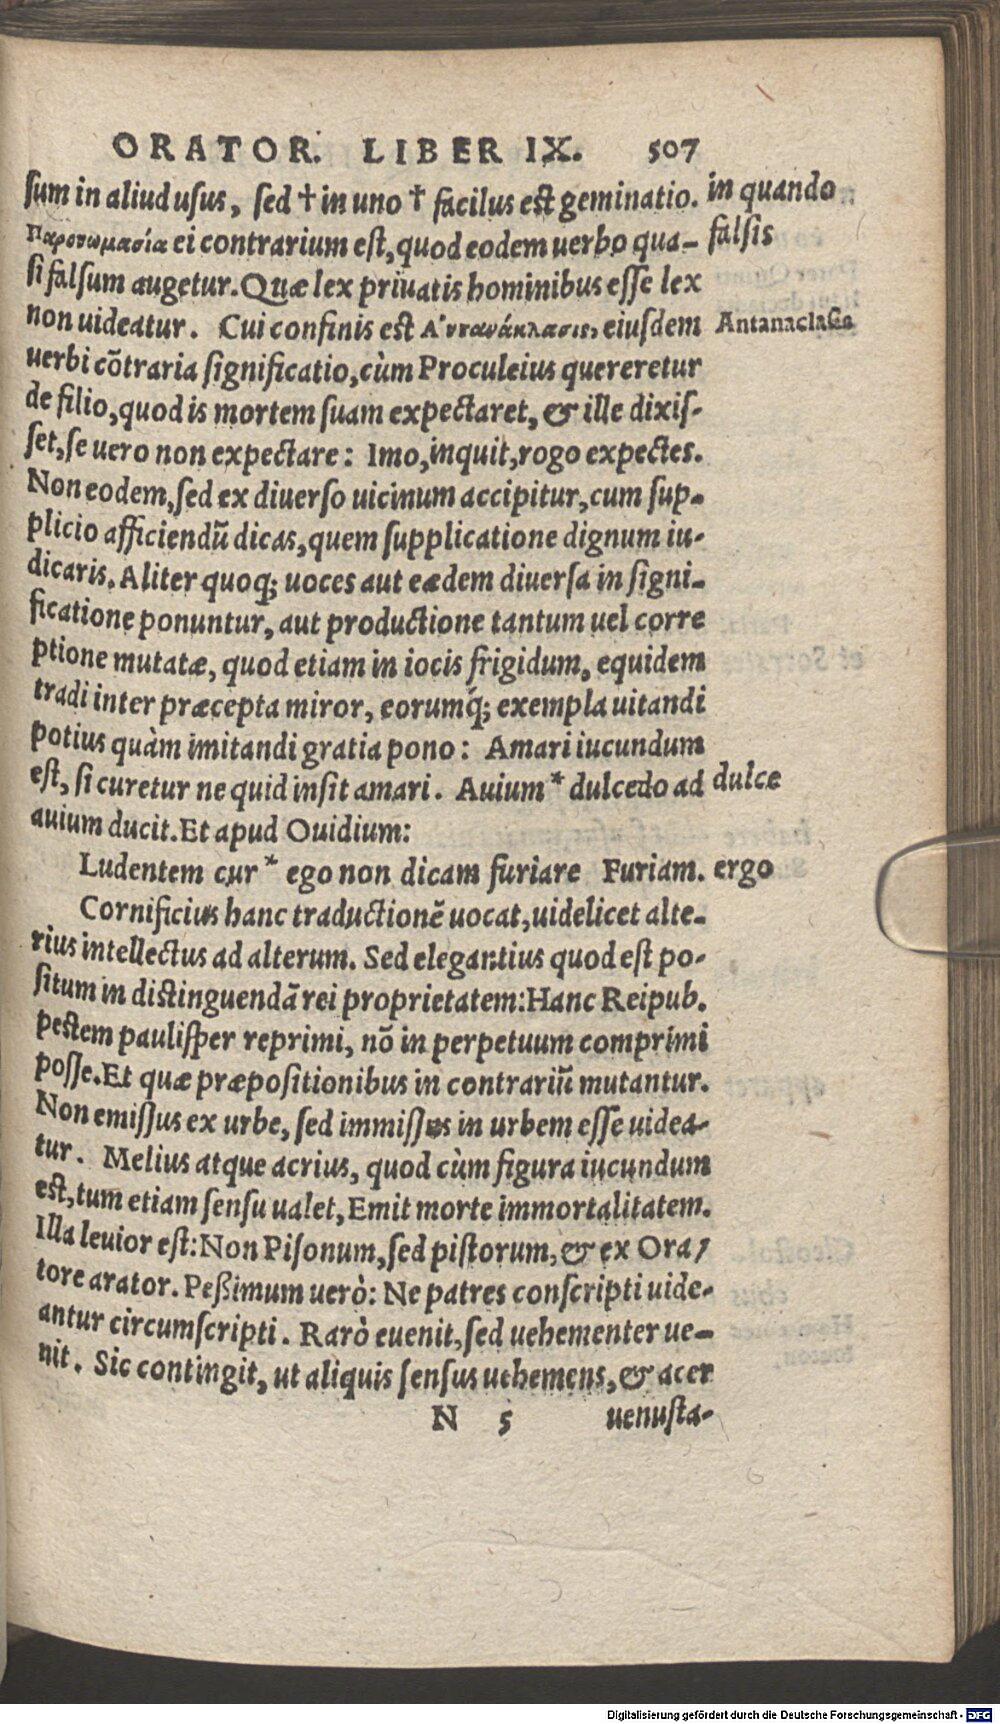 ORATOR. LIBER IX. 507
sum in aliud usus, sed † in uno † facilus est geminatio. in quando
Παρονωμασία ei contrarium est, quod eodem uerbo qua- falsis
si falsum augetur. Quæ lex priuatis hominibus esse lex
non uideatur. Cui confinis est Ἀντανάκλασις, eiusdem Antanaclasis
uerbi cõtraria significatio, cùm Proculeius quereretur
de filio, quod is mortem suam expectaret, & ille dixis-
set, se uero non expectare: Imo, inquit, rogo expectes.
Non eodem, sed ex diuerso uicinum accipitur, cum sup-
plicio afficiendũ dicas, quem supplicatione dignum iu-
dicaris. Aliter quoq; uoces aut eædem diuersa in signi-
ficatione ponuntur, aut productione tantum uel corre
ptione mutatæ, quod etiam in iocis frigidum, equidem
tradi inter præcepta miror, eorumq́; exempla uitandi
potius quàm imitandi gratia pono: Amari iucundum
est, si curetur ne quid insit amari. Auium * dulcedo ad dulce
auium ducit. Et apud Ouidium:
Ludentem cur * ego non dicam furiare Furiam. ergo
Cornificius hanc traductionẽ uocat, uidelicet alte-
rius intellectus ad alterum. Sed elegantius quod est po-
situm in distinguendã rei proprietatem: Hanc Reipub.
pestem paulisper reprimi, nõ in perpetuum comprimi
posse. Et quæ præpositionibus in contrariũ mutantur.
Non emissus ex urbe, sed immissus in urbem esse uidea-
tur. Melius atque acrius, quod cùm figura iucundum
est, tum etiam sensu ualet, Emit morte immortalitatem.
Illa leuior est: Non Pisonum, sed pistorum, & ex Ora-
tore arator. Peßimum uerò: Ne patres conscripti uide-
antur circumscripti. Rarò euenit, sed uehementer ue-
nit. Sic contingit, ut aliquis sensus uehemens, & acer
N 5 uenusta-
Digitalisierung gefördert durch die Deutsche Forschungsgemeinschaft - DFG